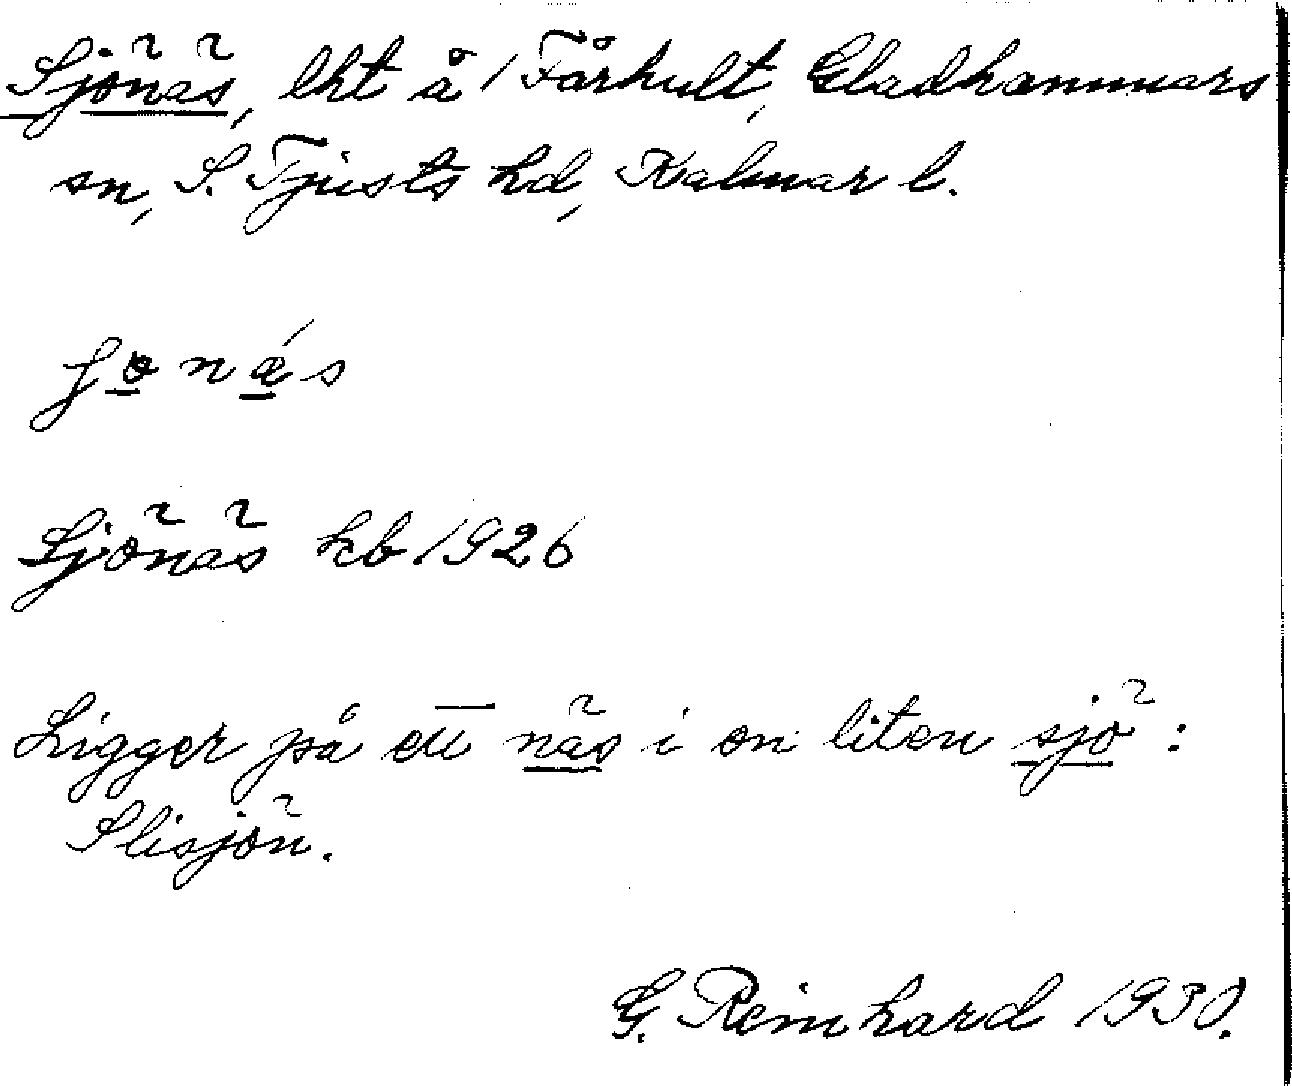 Sjönäs, lht å 1 Fårhult, Gladhammars
sn, S. Tjusts hd, Kalmar l.
ʃønǽs
Sjönäs kb 1926
Ligger på ett näs i en liten sjö:
Slisjön.
G. Reinhard 1930.